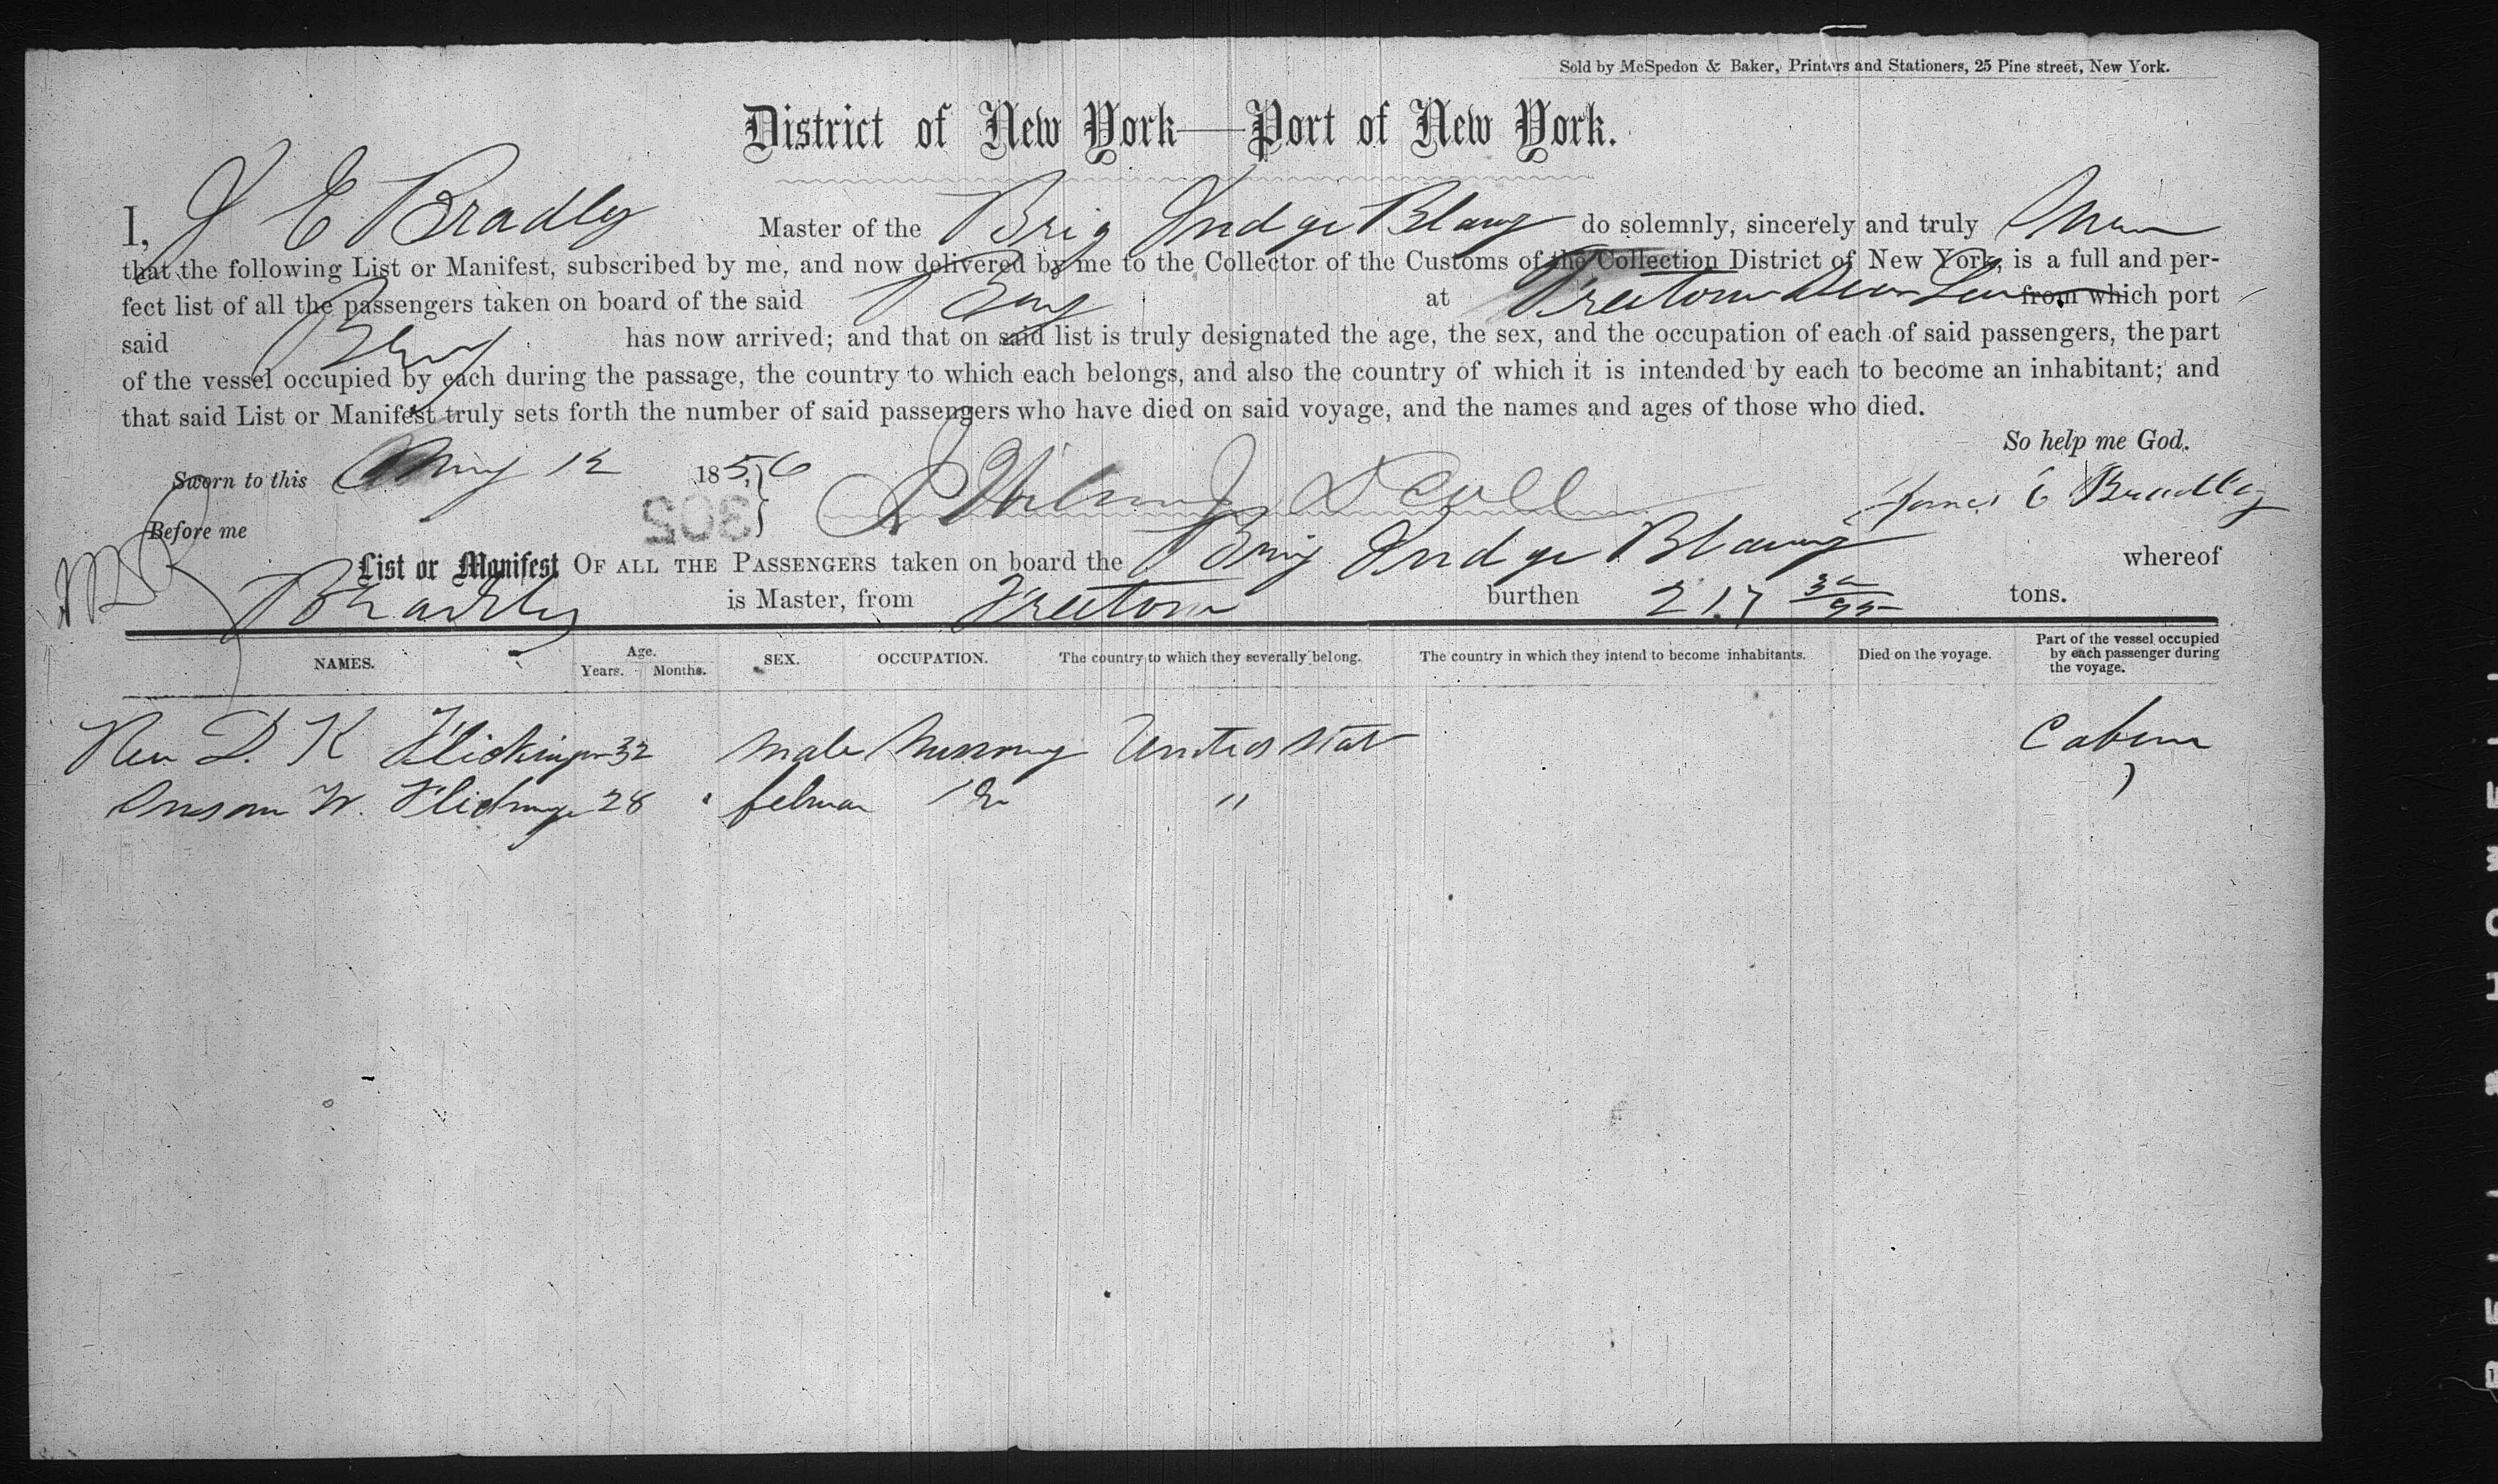 Sold by McSpedon & Baker, Printers and Stationers, 25 Pine street, New York.
District of New York—Port of New York.
I, J E Bradley Master of the Brig Judge Blaney do solemnly, sincerely and truly Swear
that the following List or Manifest, subscribed by me, and now delivered by me to the Collector of the Customs of the Collection District of New York, is a full and per-
fect list of all the passengers taken on board of the said Brig at Freetown from which port
said Brig has now arrived; and that on said list is truly designated the age, the sex, and the occupation of each of said passengers, the part
of the vessel occupied by each during the passage, the country to which each belongs, and also the country of which it is intended by each to become an inhabitant; and
that said List or Manifest truly sets forth the number of said passengers who have died on said voyage, and the names and ages of those who died.
So help me God.
Sworn to this May 12 1856 James E Bradley
302
Before me
List or Manifest OF ALL THE PASSENGERS taken on board the Brig Judge Blaney whereof
Bradley is Master, from Freetown burthen 217 tons.
NAMES. Age. Years. Months. SEX. OCCUPATION. The country to which they severally belong. The country in which they intend to become inhabitants. Died on the voyage. Part of the vessel occupied by each passenger during the voyage.
Rev D. K Flickinger 32 male United Stat Cabin
W. 28 "